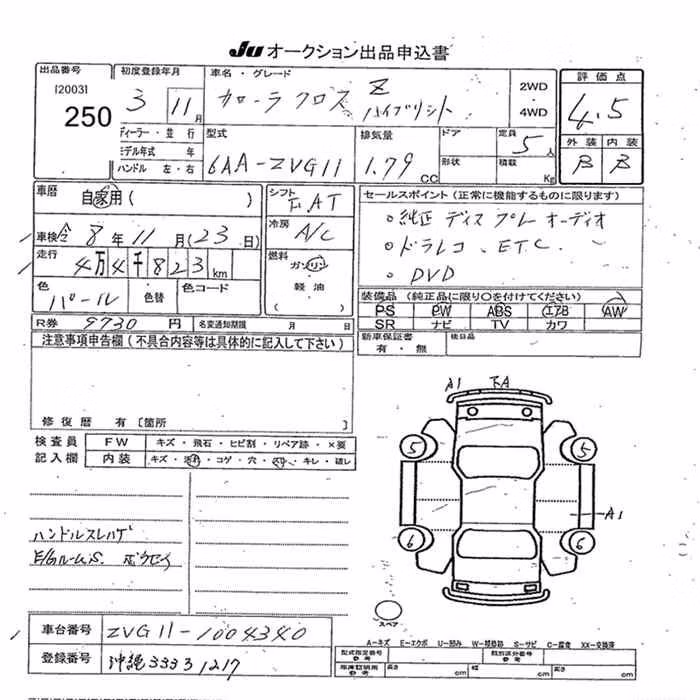 JU オークション出品申込書
出品番号
[2003]
250
初度登録年月
3 11月
車名・グレード
カローラ クロス Z
ハイブリット
2WD
・
4WD
評価点
4.5
外装 内装
B B
ディーラー・並行
モデル年式 年
ハンドル 左・右
型式
6AA-ZVG11
排気量
1.79 CC
ドア
形状
定員
5人
積載
Kg
車歴
自家用( )
車検 令 8年 11月(23日)
走行
4万4千823km
色
パール
色替
色コード
シフト
AT
冷房
A/C
燃料
ガソリン
・
軽油
セールスポイント(正常に機能するものに限ります)
○純正 ディスプレーオーディオ
○ドラレコ、ETC
○DVD
装備品(純正品に限り○を付けてください)
PS PW ABS エアB AW
SR ナビ TV カワ
R券 9730円 名変通知期限 月 日
新車保証書 後日品
有・無
注意事項申告欄(不具合内容等は具体的に記入して下さい)
修復歴 有[箇所 ]
検査員 FW キズ・飛石・ヒビ割・リペア跡・×要
記入欄 内装 キズ・汚れ・コゲ・穴・スレ・キレ・破レ
ハンドルスレハゲ
E/gルームS. ボウセイ
A1 下A
5 5
A1
6 6
スペア
車台番号 ZVG11-1004340
登録番号 沖縄333 ろ 1217
A-キズ E-エクボ U-凹み W-補修跡 S-サビ C-腐食 XX-交換済
型式指定番号
参考
類別区分番号
参考
車庫証明用
参考
長さ cm 幅 cm 高さ cm